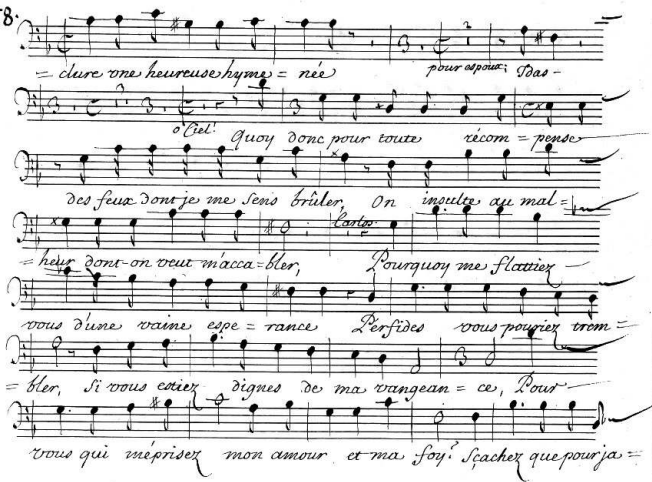 58.
= clure vne heureuse hyme = née pour espoux; Das-
o Ciel! Quoy donc pour toute récom = pense
des feux dont je me sens brûler, On insulte au mal =
Carlos.
= heur dont-on veut m'acca = bler, Pourquoy me flattiez
vous d'une vaine espe = rance Perfides vous pouriez trem =
= bler, Si vous estiez dignes de ma vangean = ce, Pour
vous qui méprisez mon amour et ma foy? Sçachez que pour ja =